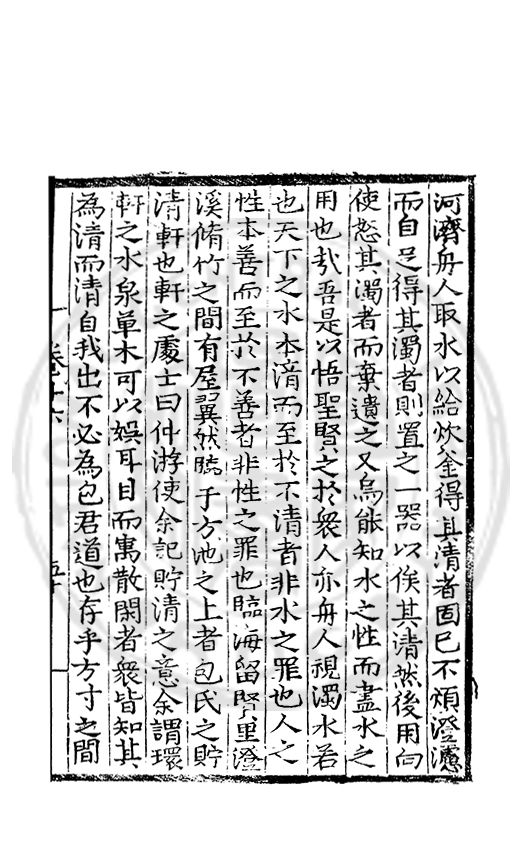 河濟舟人取水以給炊釜得其清者固已不煩澄濾
而自足得其濁者則置之一器以俟其清然後用向
使怒其濁者而棄遺之又烏能知水之性而盡水之
用也哉吾是以悟聖賢之於衆人亦舟人視濁水若
也天下之水本清而至於不清者非水之罪也人之
性本善而至於不善者非性之罪也臨海留賢里澄
溪脩竹之間有屋翼然臨于方池之上者包氏之貯
清軒也軒之處士曰仲游使余記貯清之意余謂環
軒之水泉草木可以娛耳目而寓散閑者衆皆知其
為清而清自我出不必為包君道也存乎方寸之間
卷十六
五十